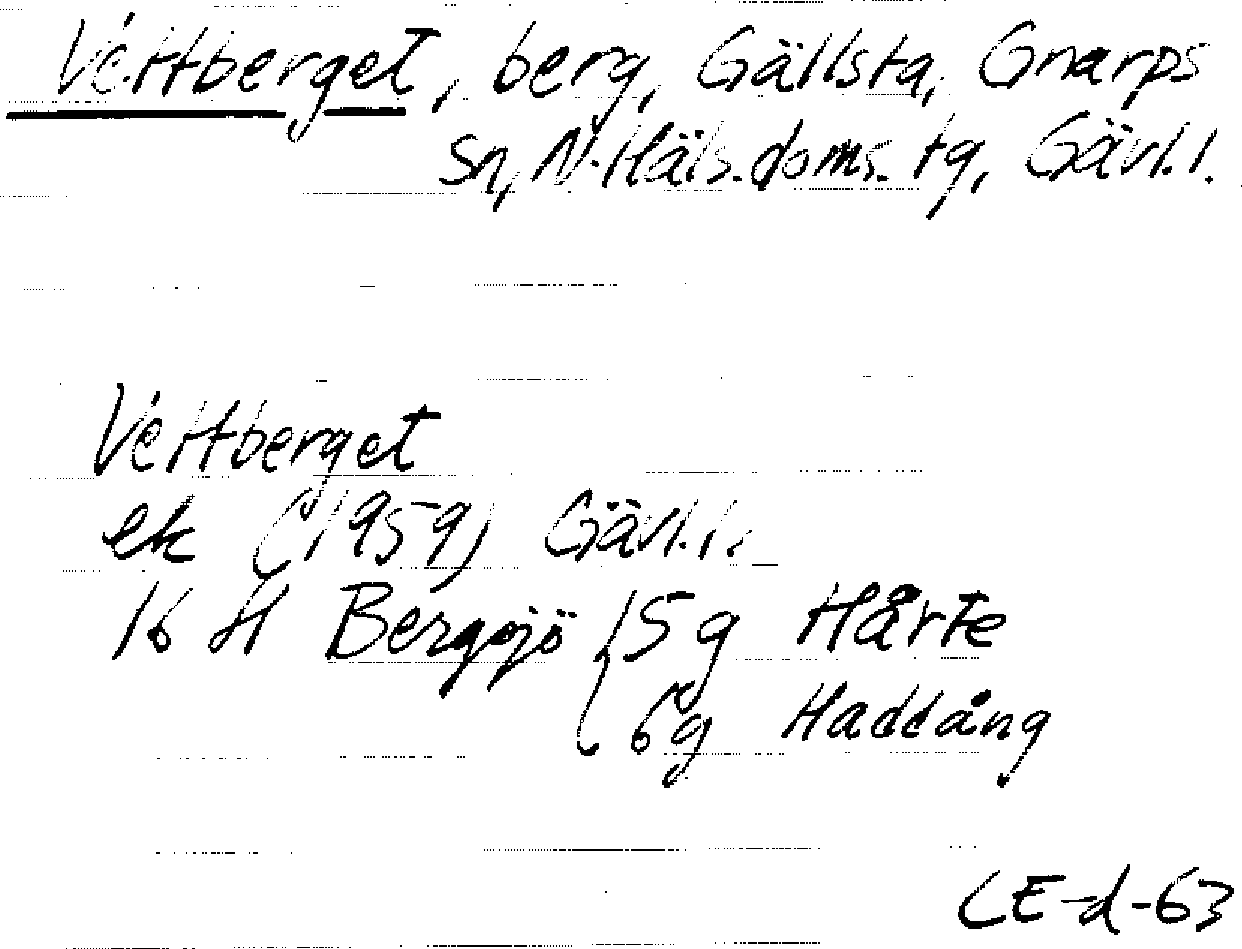 Vettberget, berg, Gällsta, Gnarps
sn, N. Häls. doms. tg, Gävl. l.
Vettberget
ek (1959) Gävl. l.
16 H Bergsjö { 5 g Hårte
6 g Haddäng
CE-d-63